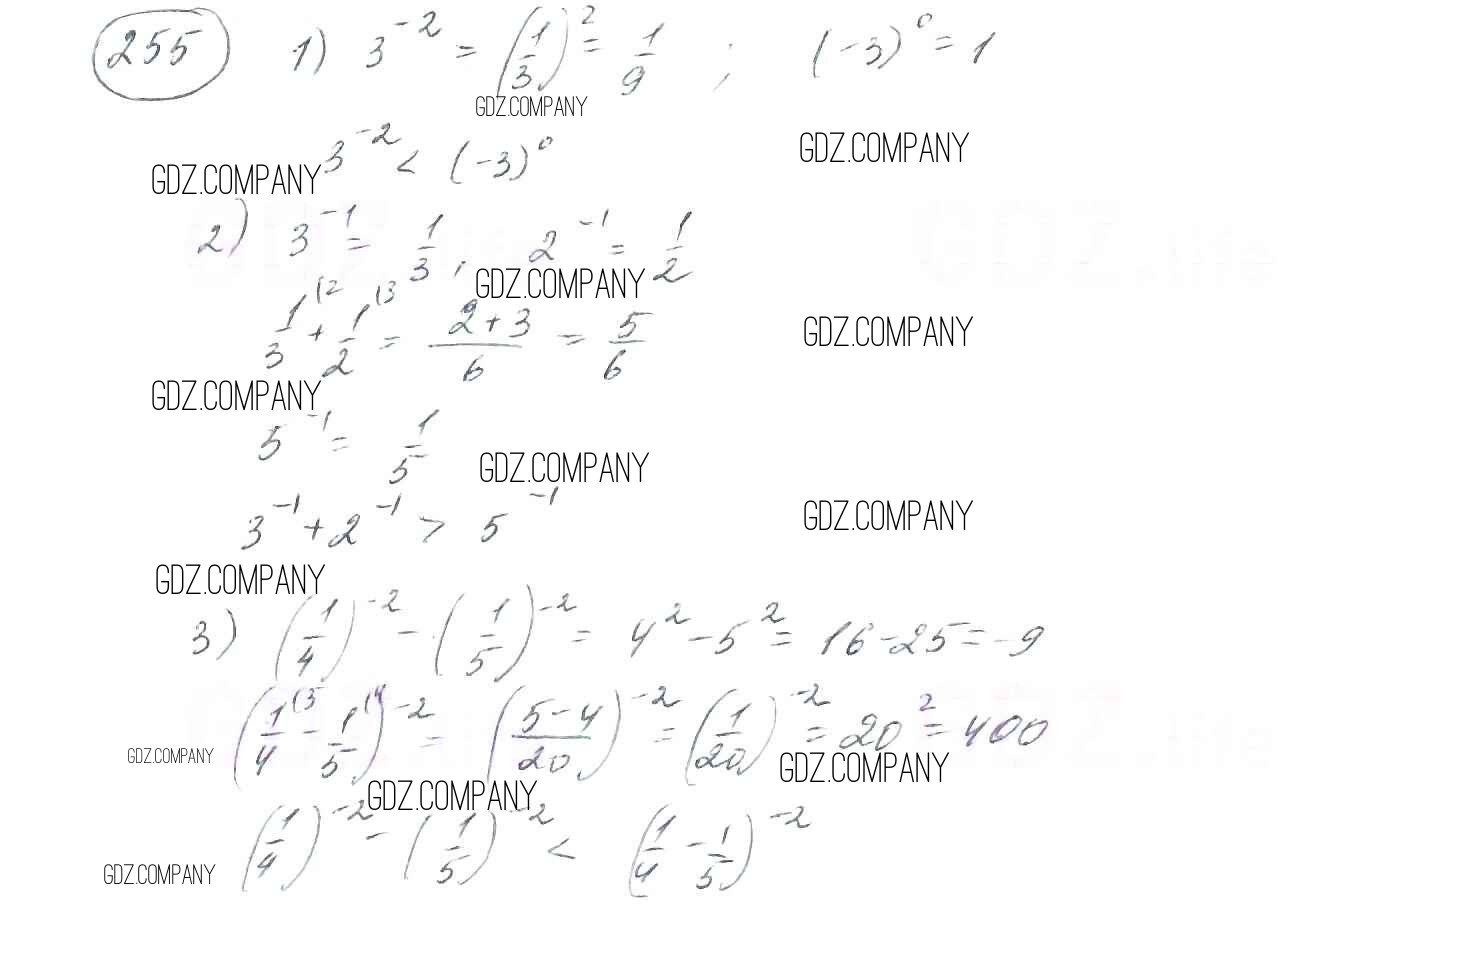 255 1) 3^{-2} = (1/3)^2 = 1/9 ; (-3)^0 = 1
GDZ.COMPANY
3^{-2} < (-3)^0 GDZ.COMPANY
GDZ.COMPANY
2) 3^{-1} = 1/3 ; 2^{-1} = 1/2
GDZ.COMPANY
1/3^{(2} + 1/2^{(3} = (2+3)/6 = 5/6 GDZ.COMPANY
GDZ.COMPANY
5^{-1} = 1/5
GDZ.COMPANY
3^{-1} + 2^{-1} > 5^{-1} GDZ.COMPANY
GDZ.COMPANY
3) (1/4)^{-2} - (1/5)^{-2} = 4^2 - 5^2 = 16 - 25 = -9
(1/4^{(5} - 1/5^{(4})^{-2} = ((5-4)/20)^{-2} = (1/20)^{-2} = 20^2 = 400
GDZ.COMPANY GDZ.COMPANY
GDZ.COMPANY
(1/4)^{-2} - (1/5)^{-2} < (1/4 - 1/5)^{-2}
GDZ.COMPANY